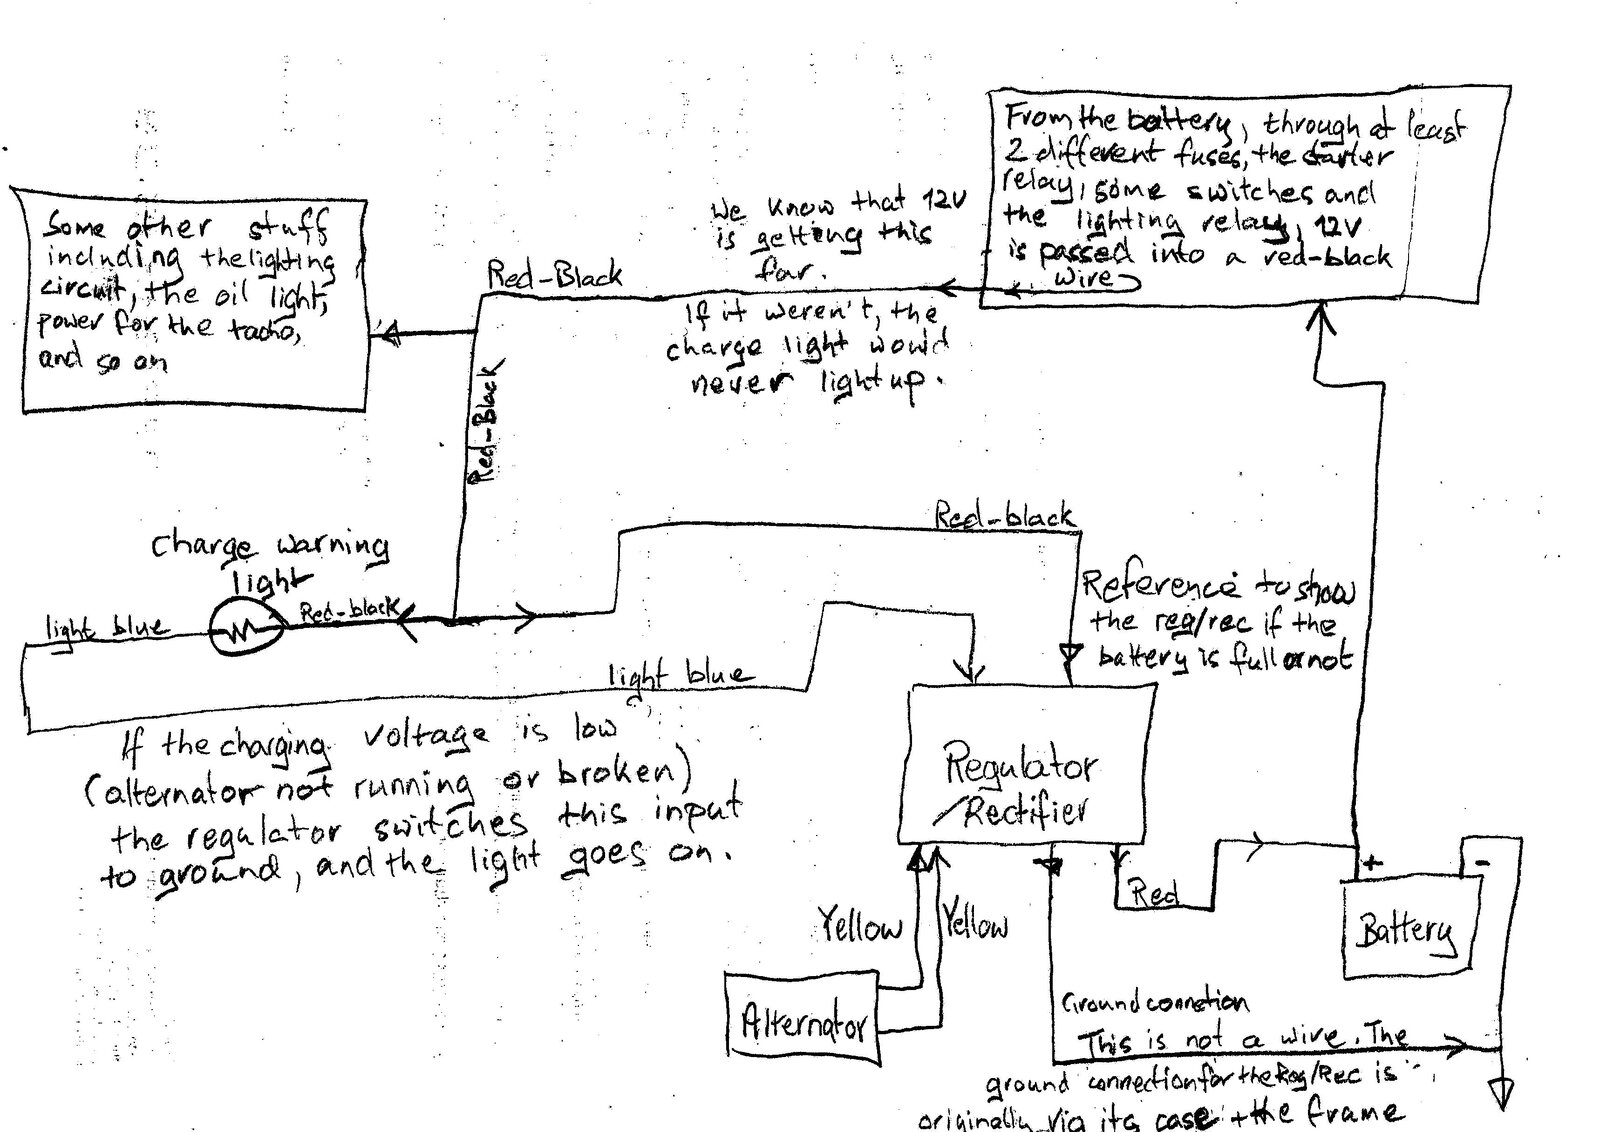 From the battery, through at least
2 different fuses, the starter
relay, some switches and
the lighting relay, 12V
is passed into a red-black
wire
We know that 12V
is getting this
far.
If it weren't, the
charge light would
never light up.
Red-Black
Some other stuff
including the lighting
circuit, the oil light,
power for the tacho,
and so on
Red-Black
Charge warning
light
light blue
Red-black
Red-black
Reference to show
the reg/rec if the
battery is full or not
light blue
If the charging voltage is low
(alternator not running or broken)
the regulator switches this input
to ground, and the light goes on.
Regulator
/Rectifier
Yellow
Yellow
Red
+
-
Battery
Alternator
Ground connetion
This is not a wire. The
ground connection for the Reg/Rec is
originally via its case + the frame